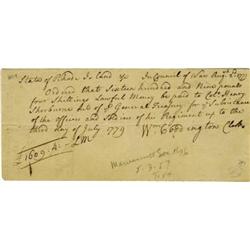 State of Rhode Island &c In Council of War Augt 2d 1779
Ordered that Sixteen hundred and Nine pounds
four Shillings Lawful Money be paid to Colo Henry
Sherburne out of ye General Treasury for ye Subsistence
of the officers and Soldiers of his Regiment up to the
third Day of July 1779 Wm Coddington Clerk
£1609:4:- LM